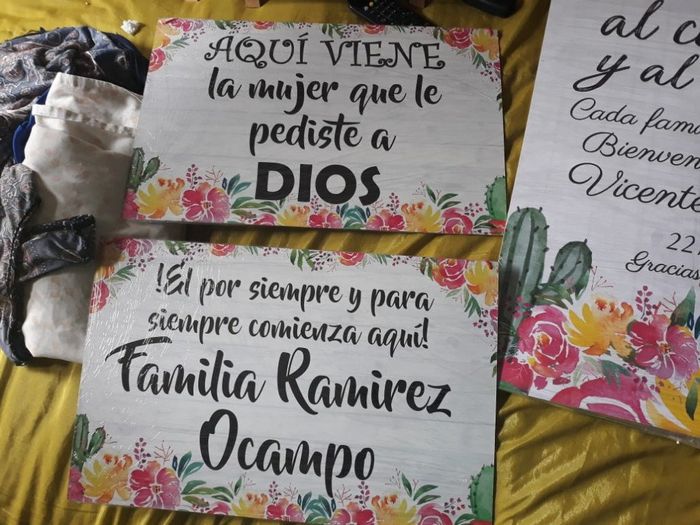 AQUÍ VIENE
la mujer que le
pediste a
DIOS
!El por siempre y para
siempre comienza aquí!
Familia Ramirez
Ocampo
y al
Cada
Bienven
Vicente
22
Gracias